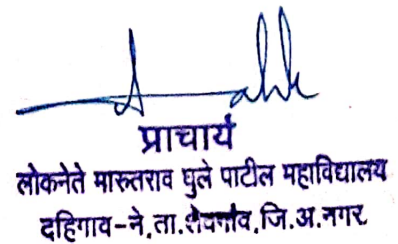 प्राचार्य
लोकनेते मारुतराव घुले पाटील महाविद्यालय
दहिगाव-ने, ता.शेवगाव, जि.अ.नगर